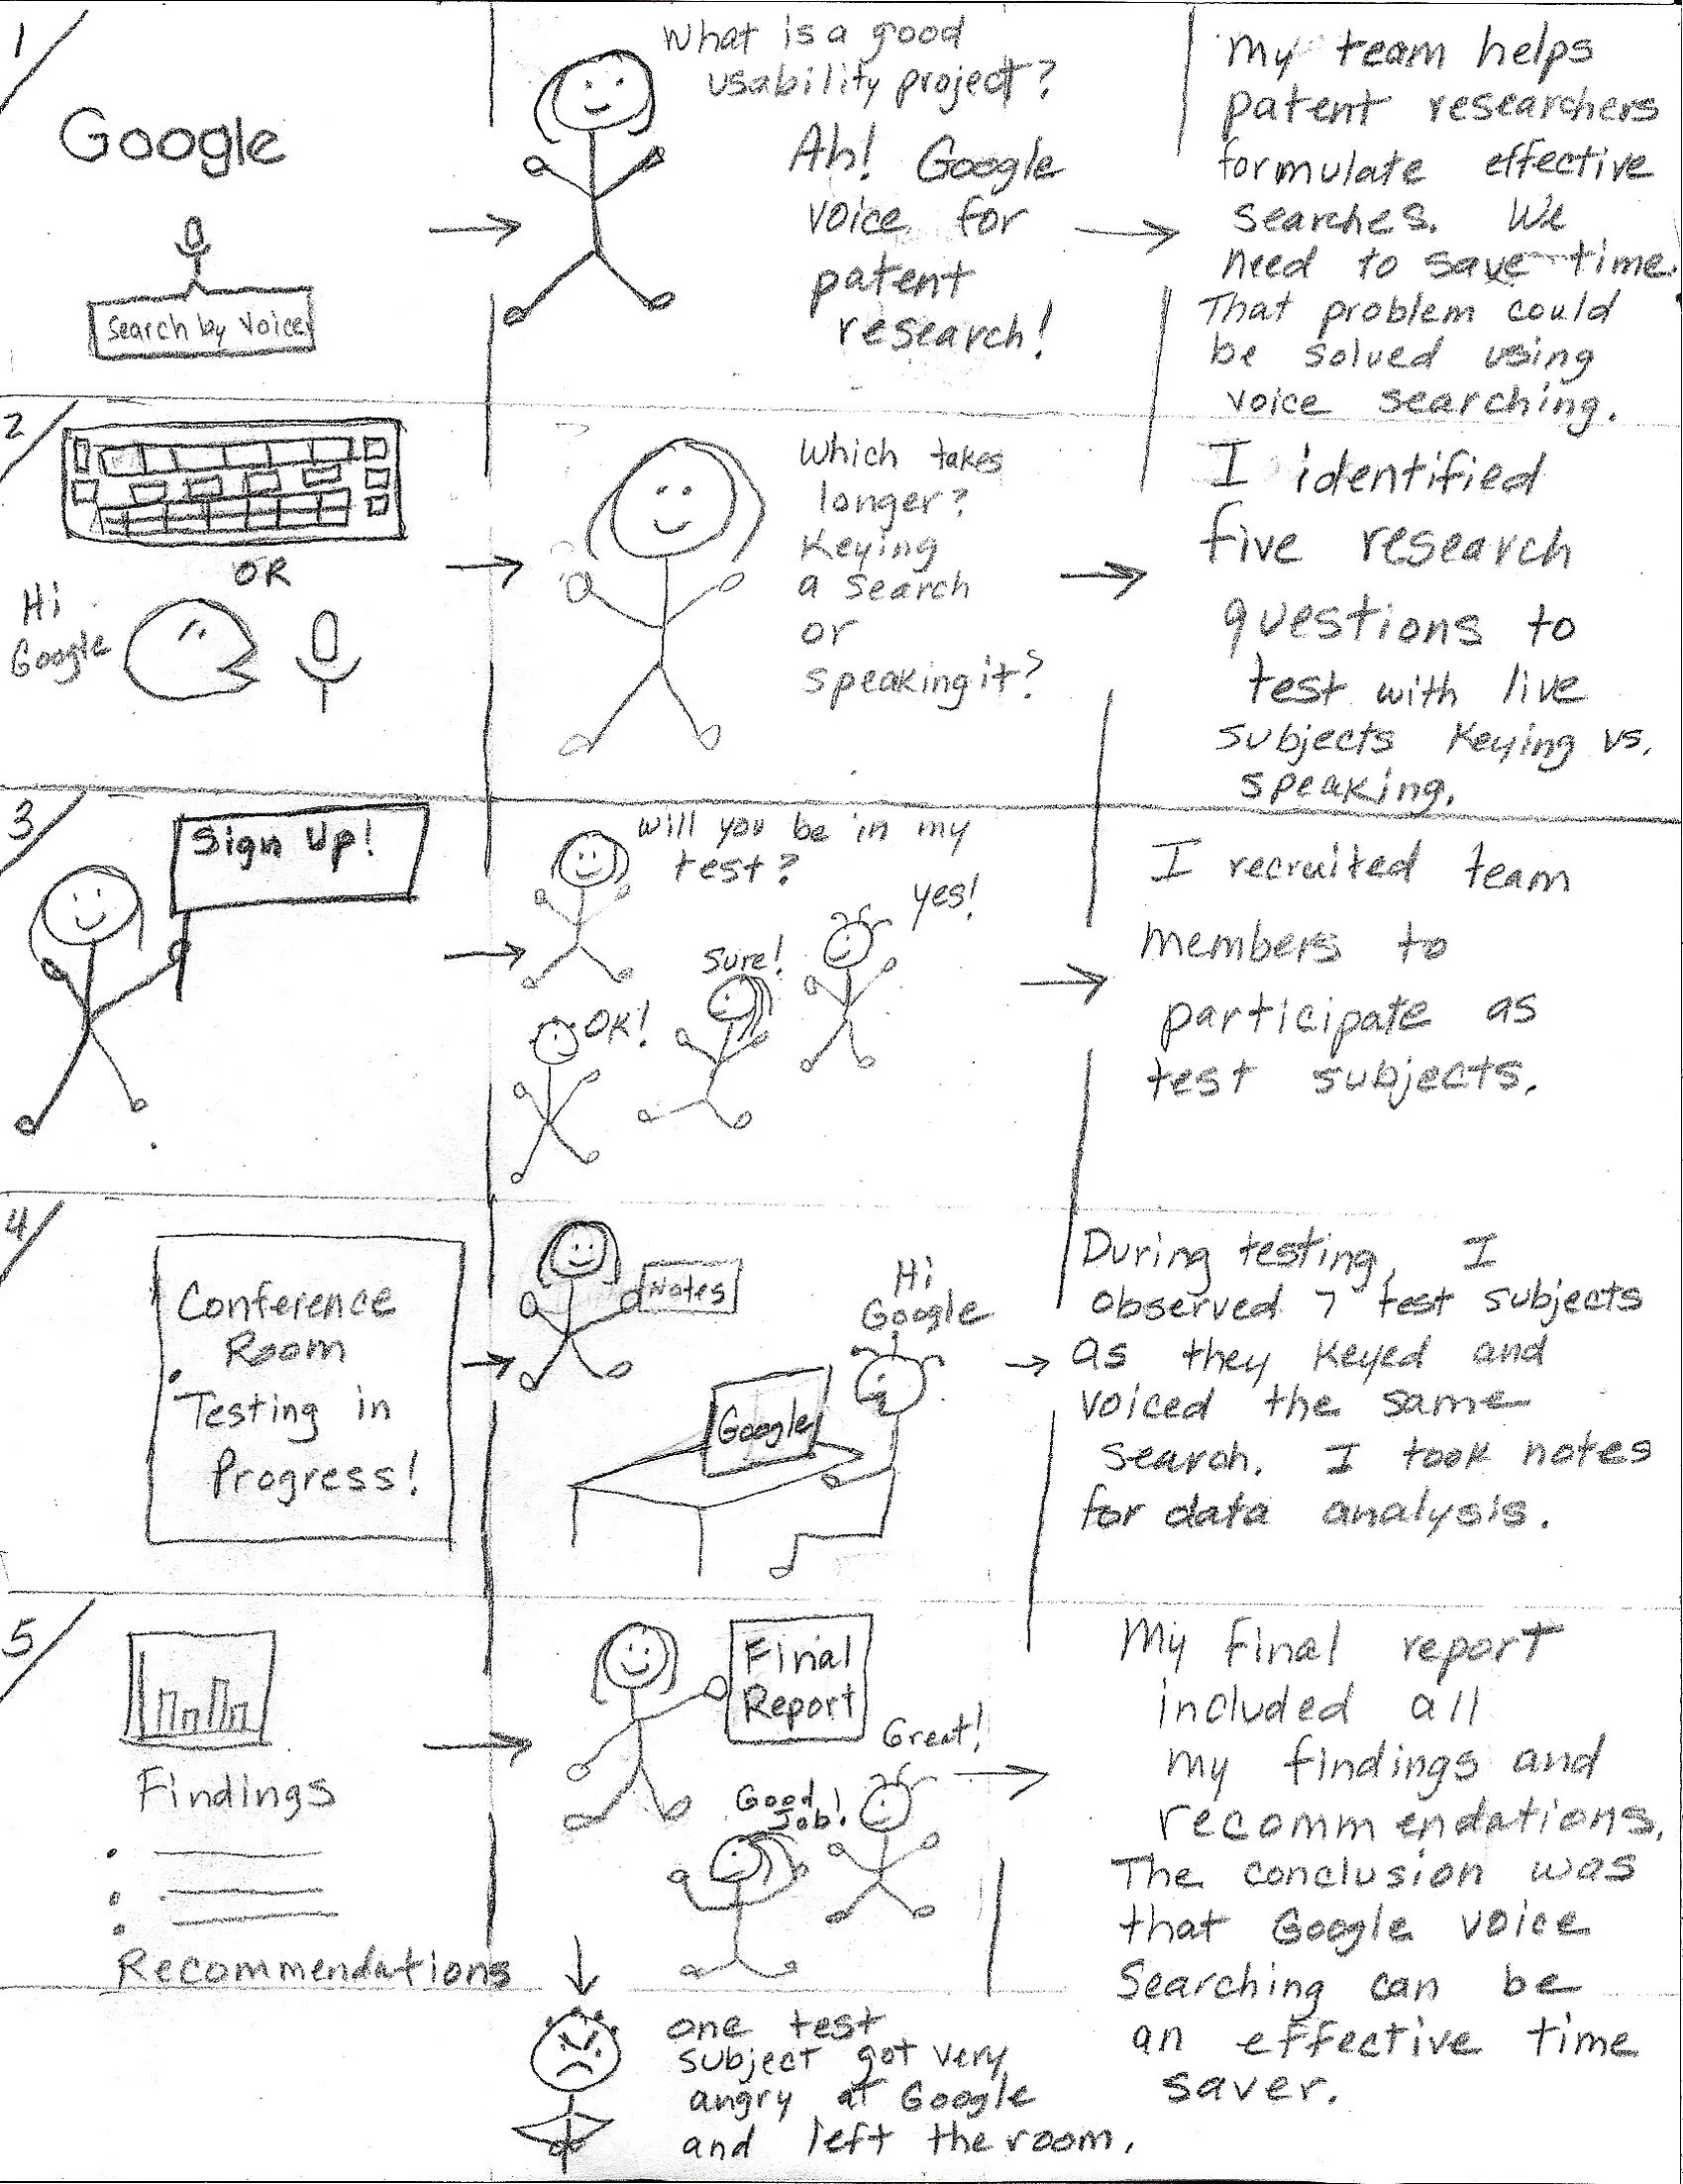 1/
Google
Search by Voice
What is a good
usability project?
Ah! Google
voice for
patent
research!
My team helps
patent researchers
formulate effective
searches. We
need to save time.
That problem could
be solved using
voice searching.
2/
OR
Hi
Google
Which takes
longer?
Keying
a search
or
speaking it?
I identified
five research
questions to
test with live
subjects Keying vs.
speaking.
3/
Sign Up!
Will you be in my
test?
Yes!
Sure!
OK!
I recruited team
members to
participate as
test subjects.
4/
Conference
Room
Testing in
Progress!
Notes
Hi
Google
Google
During testing, I
observed 7 test subjects
as they keyed and
voiced the same
search. I took notes
for data analysis.
5/
Findings
Recommendations
Final
Report
Great!
Good
Job!
My final report
included all
my findings and
recommendations.
The conclusion was
that Google voice
Searching can be
an effective time
saver.
one test
subject got very
angry at Google
and left the room.